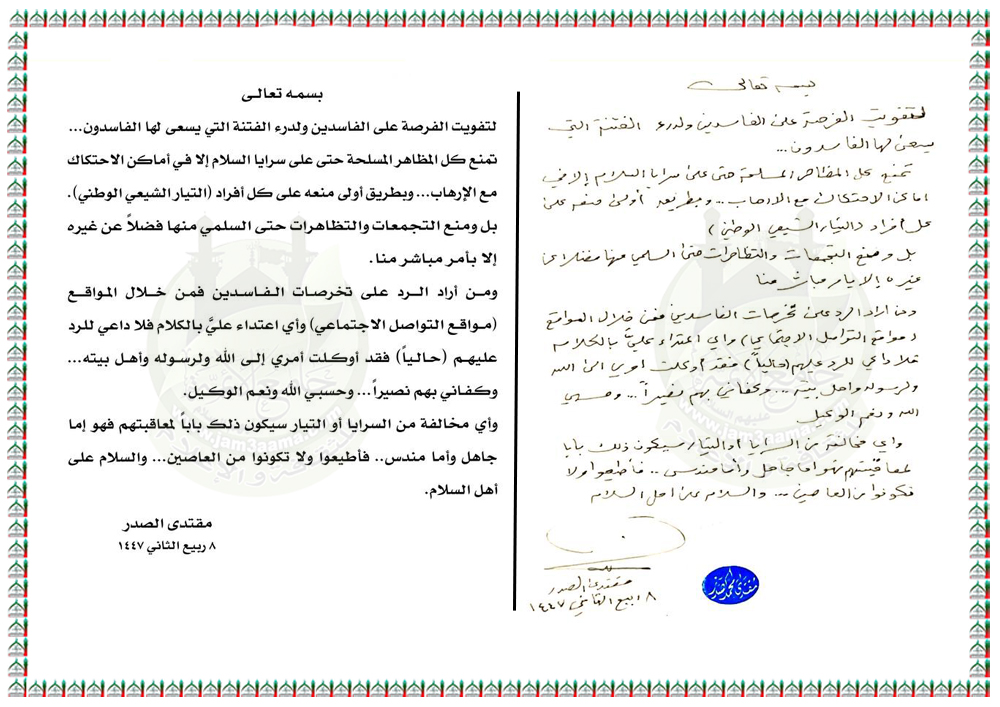 بسمه تعالى
لتفويت الفرصة على الفاسدين ولدرء الفتنة التي
يسعى لها الفاسدون...
تمنع كل المظاهر المسلحة حتى على سرايا السلام إلا في
اماكن الاحتكاك مع الارهاب... وبطريق أولى منعه على
كل أفراد (التيار الشيعي الوطني)
بل ومنع التجمعات والتظاهرات حتى السلمي منها فضلا عن
غيره إلا بامر مباشر منا
ومن اراد الرد على تخرصات الفاسدين فمن خلال المواقع
(مواقع التواصل الاجتماعي) واي اعتداء عليَّ بالكلام
فلا داعي للرد عليهم (حالياً) فقد أوكلت أمري الى الله
ولرسوله واهل بيته... وكفاني بهم نصيراً... وحسبي
الله ونعم الوكيل
واي مخالفة من السرايا أو التيار سيكون ذلك بابا
لمعاقبتهم فهو اما جاهل وأما مندس.. فأطيعوا ولا
تكونوا من العاصين... والسلام على اهل السلام
مقتدى الصدر
٨ ربيع الثاني ١٤٤٧
بسمه تعالى
لتفويت الفرصة على الفاسدين ولدرء الفتنة التي يسعى لها الفاسدون...
تمنع كل المظاهر المسلحة حتى على سرايا السلام إلا في أماكن الاحتكاك
مع الإرهاب... وبطريق أولى منعه على كل أفراد (التيار الشيعي الوطني).
بل ومنع التجمعات والتظاهرات حتى السلمي منها فضلاً عن غيره
إلا بأمر مباشر منا.
ومن أراد الرد على تخرصات الفاسدين فمن خلال المواقع
(مواقع التواصل الاجتماعي) وأي اعتداء عليَّ بالكلام فلا داعي للرد
عليهم (حالياً) فقد أوكلت أمري إلى الله ولرسوله وأهل بيته...
وكفاني بهم نصيراً... وحسبي الله ونعم الوكيل.
وأي مخالفة من السرايا أو التيار سيكون ذلك باباً لمعاقبتهم فهو إما
جاهل وأما مندس.. فأطيعوا ولا تكونوا من العاصين... والسلام على
أهل السلام.
مقتدى الصدر
٨ ربيع الثاني ١٤٤٧
www.jam3aama.com